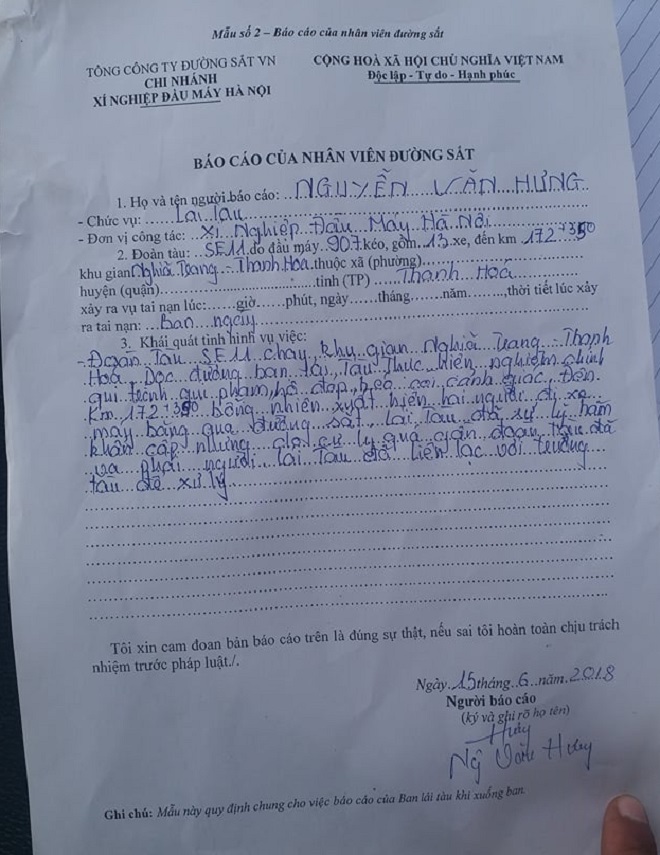 Mẫu số 2 – Báo cáo của nhân viên đường sắt
TỔNG CÔNG TY ĐƯỜNG SẮT VN
CHI NHÁNH
XÍ NGHIỆP ĐẦU MÁY HÀ NỘI
CỘNG HOÀ XÃ HỘI CHỦ NGHĨA VIỆT NAM
Độc lập - Tự do - Hạnh phúc
BÁO CÁO CỦA NHÂN VIÊN ĐƯỜNG SẮT
1. Họ và tên người báo cáo: NGUYỄN VĂN HƯNG
- Chức vụ: Lái tàu
- Đơn vị công tác: Xí Nghiệp Đầu Máy Hà Nội
2. Đoàn tàu: SE11 do đầu máy 907 kéo, gồm 13 xe, đến km 172+350
khu gian Nghĩa Trang - Thanh Hoá thuộc xã (phường)
huyện (quận) tỉnh (TP) Thanh Hoá
xảy ra vụ tai nạn lúc: giờ phút, ngày tháng năm, thời tiết lúc xảy
ra tai nạn: Ban ngày
3. Khái quát tình hình vụ việc:
- Đoàn Tàu SE11 chạy khu gian Nghĩa Trang - Thanh
Hoá. Dọc đường ban lái Tàu Thực hiện nghiêm chỉnh
qui trình qui phạm, hô đáp, kéo còi cảnh giác. Đến
Km 172+350 bỗng nhiên xuất hiện hai người đi xe
máy băng qua đường sắt. lái Tàu đã xử lý hãm
khẩn cấp nhưng do cự ly quá gần đoàn Tàu đã
va phải người lái Tàu đã liên lạc với trưởng
tàu để xử lý
Tôi xin cam đoan bản báo cáo trên là đúng sự thật, nếu sai tôi hoàn toàn chịu trách
nhiệm trước pháp luật./.
Ngày 15 tháng 6 năm 2018
Người báo cáo
(ký và ghi rõ họ tên)
Hưng
Ng Văn Hưng
Ghi chú: Mẫu này quy định chung cho việc báo cáo của Ban lái tàu khi xuống ban